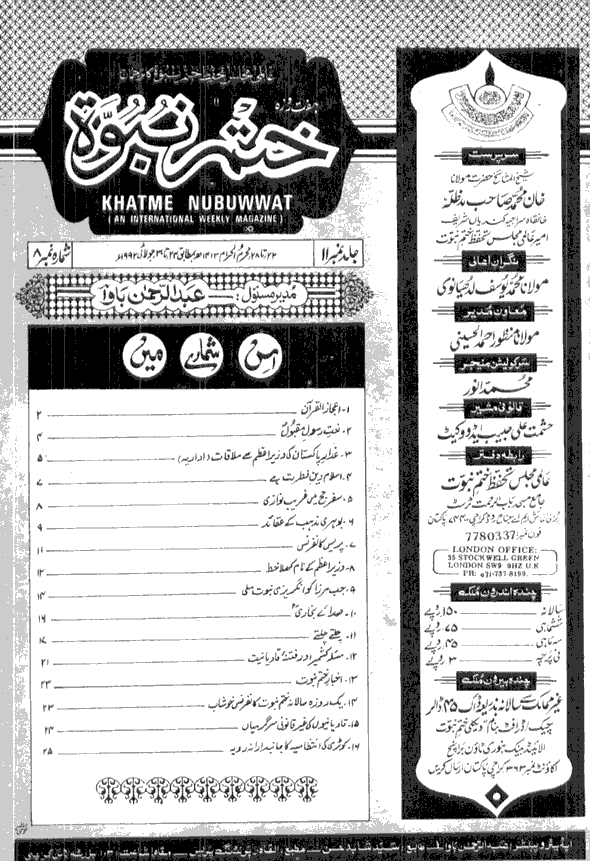 عالمی مجلس تحفظ ختم نبوۃ کا ترجمان
ہفت روزہ
ختم نبوۃ
KHATME NUBUWWAT
(AN INTERNATIONAL WEEKLY MAGAZINE)
جلد نمبر ۱۱
۲۲ تا ۲۸ محرم الحرام ۱۴۱۳ھ بمطابق ۲۴ تا ۳۱ جولائی ۱۹۹۲ء
شمارہ نمبر ۸
مدیر مسئول: عبد الرحمٰن باوا
اس شمارے میں
۱- اعجاز القرآن ۲
۲- نعت رسول مقبول ۴
۳- غدار پاکستان کی وزیراعظم سے ملاقات (اداریہ) ۵
۴- اسلام دین فطرت ہے ۷
۵- سفر حج میں غریب نوازی ۸
۶- بوہری مذہب کے عقائد ۹
۷- پریس کانفرنس ۱۱
۸- وزیراعظم کے نام کھلا خط ۱۲
۹- جب مرزا کو انگریزی نبوت ملی ۱۴
۱۰- صدائے بخاری ۱۶
۱۱- چلتے چلتے ۱۷
۱۲- مسئلہ کشمیر اور فتنہ قادیانیت ۲۱
۱۳- اخبار ختم نبوت ۲۳
۱۴- یک روزہ سالانہ ختم نبوت کانفرنس خوشاب ۲۳
۱۵- قادیانیوں کی غیر قانونی سرگرمیاں ۲۴
۱۶- کوٹری کی انتظامیہ کا جانبدارانہ رویہ ۲۵
سرپرست
شیخ المشائخ حضرت مولانا
خان محمد صاحب مدظلہ
خانقاہ سراجیہ کندیاں شریف
امیر عالمی مجلس تحفظ ختم نبوت
نگران اعلیٰ
مولانا محمد یوسف لدھیانوی
معاون مدیر
مولانا منظور احمد الحسینی
سرکولیشن منیجر
محمد انور
قانونی مشیر
حشمت علی حبیب ایڈووکیٹ
رابطہ دفتر
عالمی مجلس تحفظ ختم نبوت
جامع مسجد باب الرحمت ٹرسٹ
پرانی نمائش ایم اے جناح روڈ کراچی ۷۴۴۰۰ پاکستان
فون نمبر: 7780337
LONDON OFFICE:
35 STOCKWELL GREEN
LONDON SW9 9HZ U.K
PH: 071-737-8199.
چندہ اندرون ملک
سالانہ ۱۵۰ روپے
ششماہی ۷۵ روپے
سہ ماہی ۴۵ روپے
فی پرچہ ۳ روپے
چندہ بیرون ملک
غیر ممالک سے سالانہ بذریعہ ڈاک ۴۵ ڈالر
چیک/ڈرافٹ بنام ویکلی ختم نبوت
الائیڈ بینک بنوری ٹاؤن برانچ
اکاؤنٹ نمبر ۳۶۳ کراچی پاکستان ارسال کریں